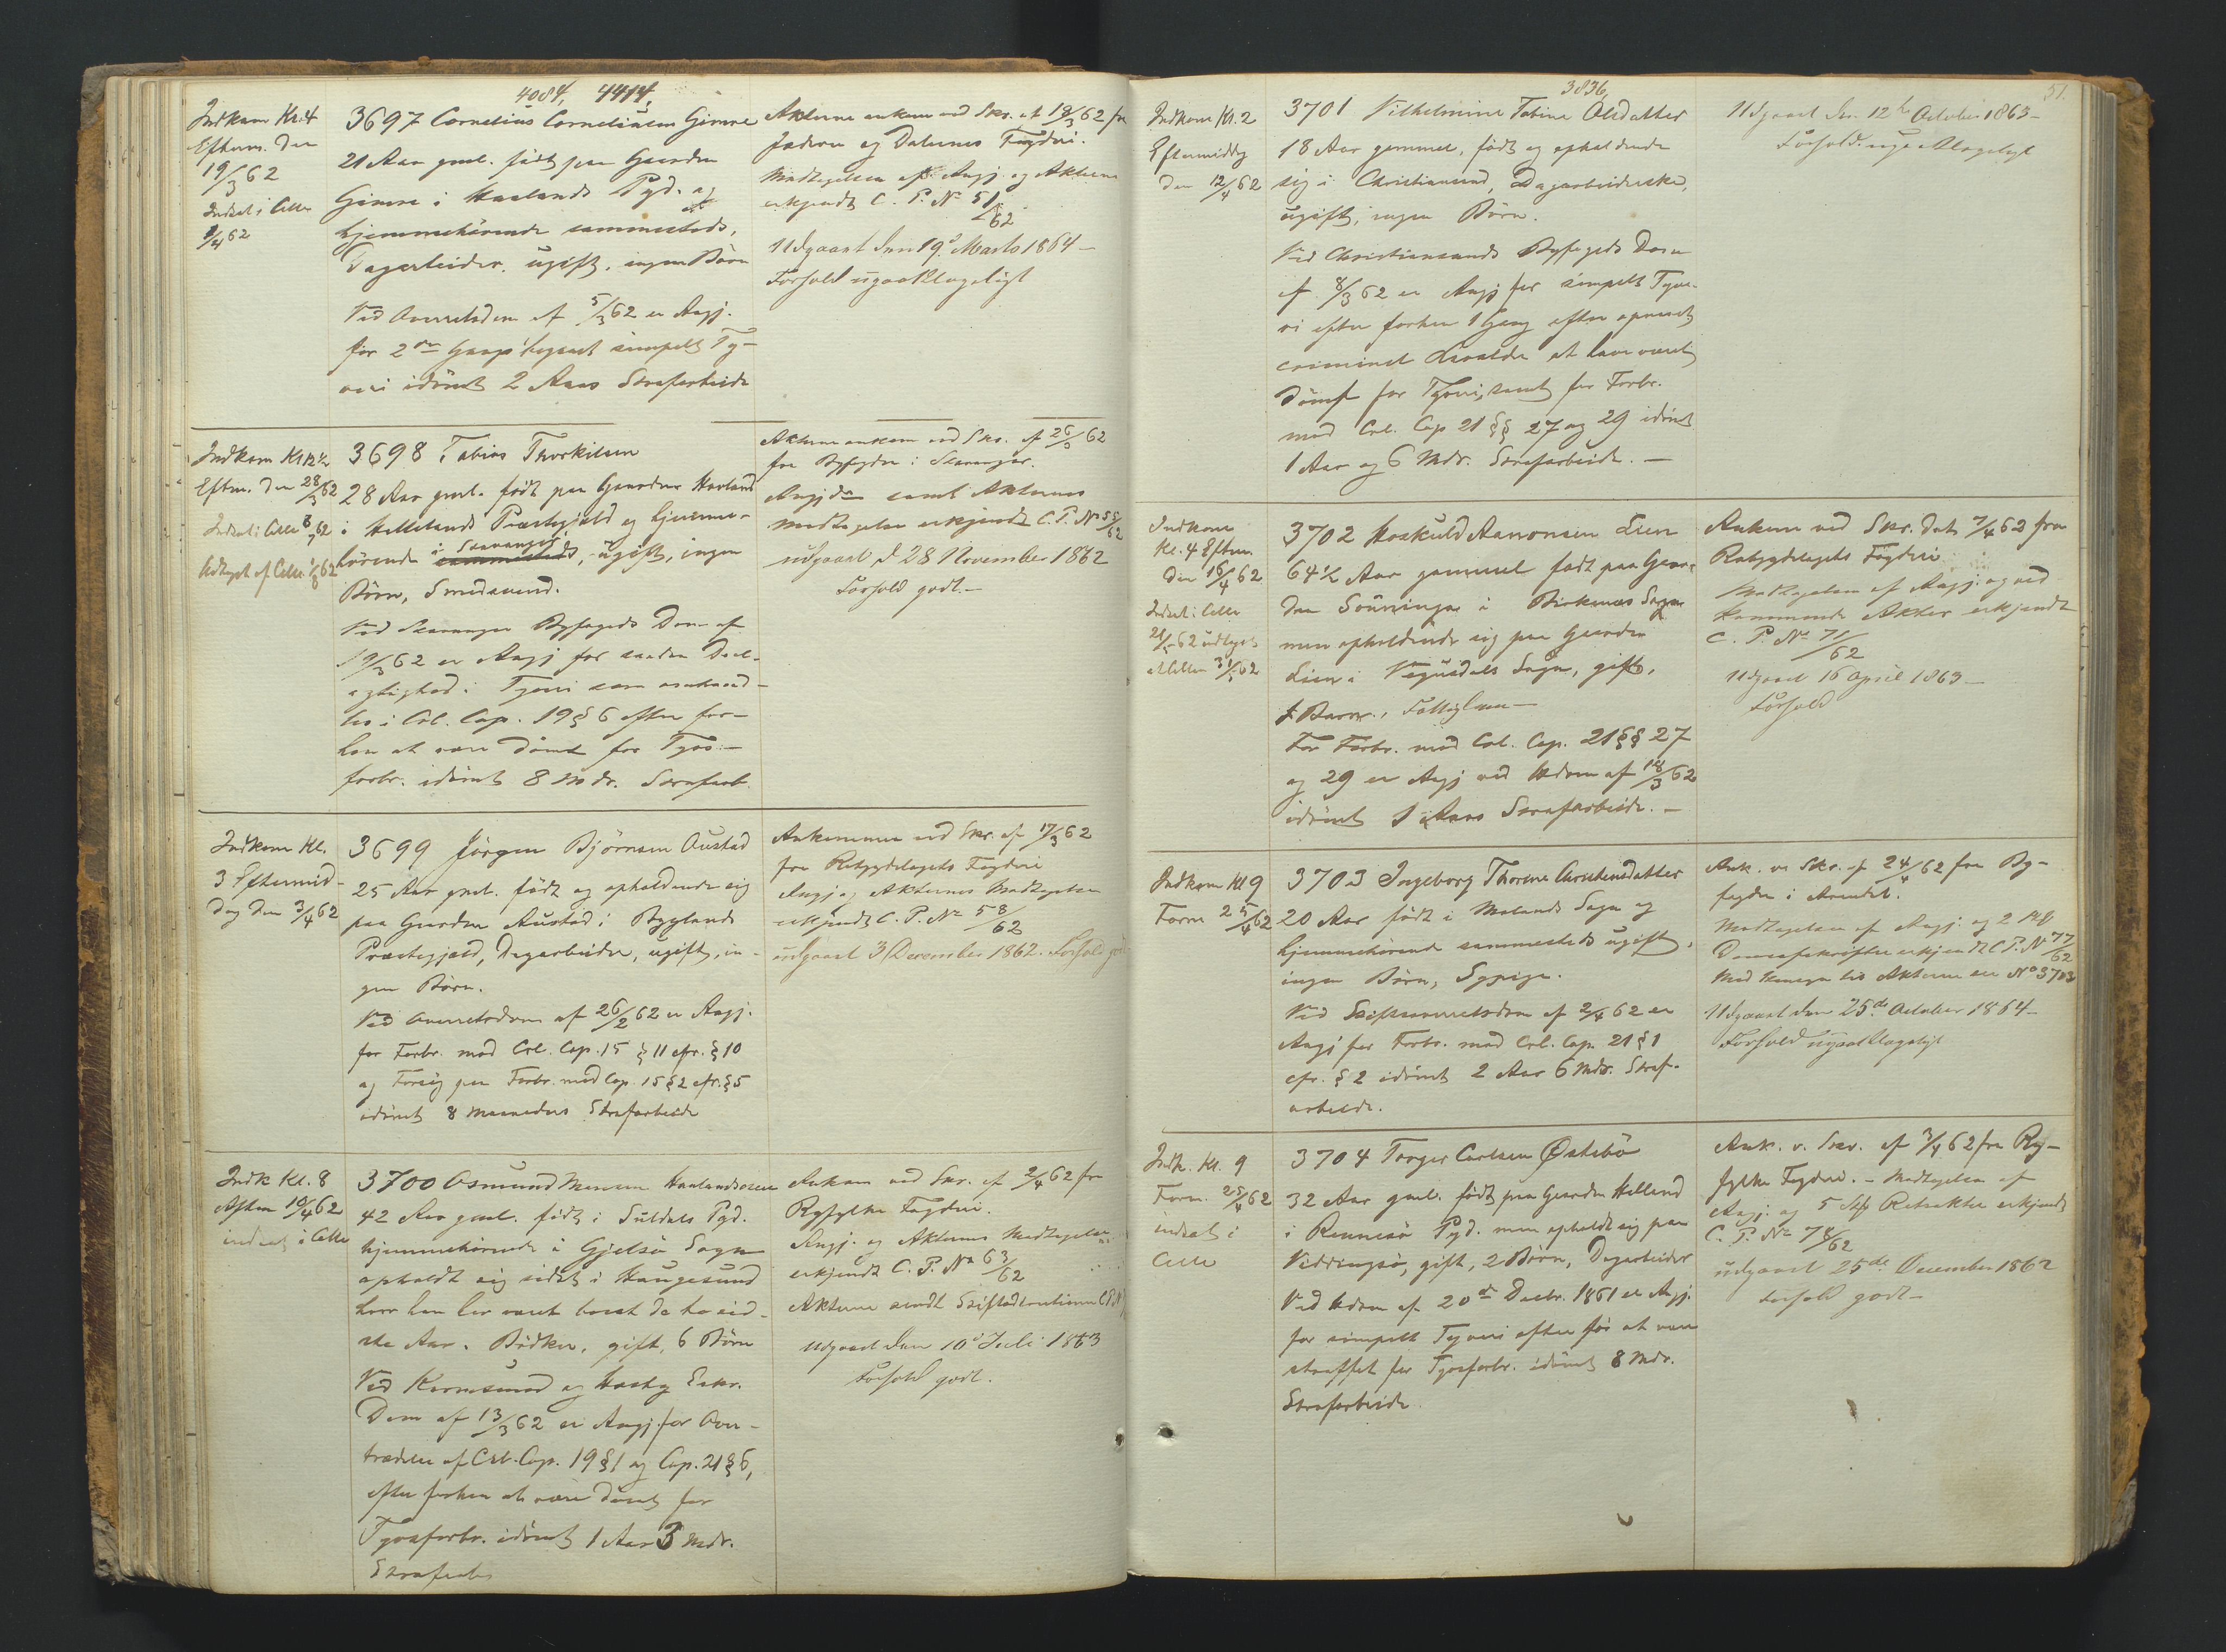 4084, 4414,
Indkom Kl. 4
Efterm. den
19/3 62
Indsat i Celle
1/4 62
3697 Cornelius Corneliusen Gimre
21 Aar gml. födt paa Gaarden
Gimre i Haalands Pgd. og
hjemmehörende sammesteds,
Dagarbeider, ugift, ingen Börn
Ved Overretsdom af 5/3 62 er Angj.
for 2den Gang begaaet simpelt Ty-
veri idömt 2 Aars Strafarbeide
Akterne ankom ved Skr. af 19/3 62 fra
Jæderen og Dalernes Fogderi.
Modtagelsen af Angj. og Akterne
erkjendt C. P. No 51/62
Udgaaet den 19de Marts 1864 –
Forhold upaaklageligt
Indkom Kl 12 1/2
Efterm. den 28/3 62
Indsat i Celle
Udtaget af Celle
3698 Tobias Thorkilsen
28 Aar gml. födt paa Gaarden Havland
i Hellelands Præstegjeld og hjemme-
hörende i Stavanger sammesteds, ugift, ingen
Börn, Smedsvend.
Ved Stavanger Byfogeds Dom af
19/3 62 er Angj for saadan Deel-
agtighed i Tyveri som omhand-
les i Crl. Cap. 19 § 6 efter for-
hen at være dömt for Tyvs-
forbr. idömt 8 Mdr. Strafarb.
Akterne ankom ved Skr. af 26/3 62
fra Byfogden i Stavanger.
Angjds samt Akternes
modtagelse erkjendt C. P. No 55/62
udgaaet d 28 November 1862
Forhold godt. –
Indkom Kl.
3 Eftermid-
dag den 3/4 62
3699 Jörgen Björnsen Austad
25 Aar gml. födt og opholdende sig
paa Gaarden Austad i Byglands
Præstegjeld, Dagarbeider, ugift, in-
gen Börn.
Ved Overretsdom af 26/2 62 er Angj.
for Forbr. mod Crl. Cap. 15 § 11 cfr. § 10
og Forsög paa Forbr. mod Cap. 15 § 2 cfr. § 5
idömt 8 Maaneders Strafarbeide
Ankommen ved Skr. af 17/3 62
fra Robygdelagets Fogderi
Angj og Akternes Modtagelse
erkjendt C. P. No 58/62
udgaaet 3 December 1862. Forhold godt
Indk Kl. 8
Aften 10/4 62
indsat i Celle
3700 Osmund Monsen Haalandsosen
42 Aar gml. födt i Suldals Pgd.
hjemmehörende i Gjelsö Sogn
opholdt sig sidst i Haugesund
hvor han har været bosat de to sid-
ste Aar. Bödker, gift, 6 Börn
Ved Karmsund og Hasby Extr.
Dom af 13/3 62 er Angj. for Over-
trædelse af Crl. Cap. 19 § 1 og Cap. 21 § 6,
efter forhen at være dömt for
Tyvsforbr. idömt 1 Aar 3 Mdr.
Strafarb.
Ankom ved Skr. af 2/4 62 fra
Ryfylke Fogderi.
Angj. og Akternes Modtagelse
erkjendt C. P. No 63/62
Akterne sendt Stiftsdirectionen
Udgaaet den 10de Juli 1863
Forhold godt.
3836,
51.
Indkom Kl. 2
Eftermiddag
den 12/4 62
3701 Vilhelmine Tobine Olsdatter
18 Aar gammel, födt og opholdende
sig i Christiansand, Dagarbeiderske,
ugift, ingen Börn.
Ved Christiansands Byfogeds Dom
af 8/3 62 er Angj for simpelt Tyve-
ri efter forhen 1 Gang efter opnaaet
criminel Lavalder at have været
dömt for Tyveri, samt for Forbr.
mod Crl. Cap 21 §§ 27 og 29 idömt
1 Aar og 6 Mdr. Strafarbeide. –
Udgaaet den 12te October 1863 –
Forhold upaaklageligt
Indkom
Kl. 4 Efterm.
den 16/4 62
Indsat i Celle
3702 Hoskuld Aanonsen Lien
64 1/2 Aar gammel födt paa Gaar-
den Sönninge i Birkenæs Sogn
men opholdende sig paa Gaarden
Lien i Vegusdals Sogn, gift,
Fattiglem –
For Forbr. mod Crl. Cap. 21 §§ 27
og 29 er Angj ved Udom af 18/3 62
idömt 1 Aars Strafarbeide. –
Ankom ved Skr. dat. 7/4 62 fra
Robygdelagets Fogderi
Modtagelsen af Angj. og ved
kommende Akter erkjendt
C. P. No 71/62
Udgaaet 16 April 1863 –
Forhold
Indkom Kl 9
Form 25/4 62
3703 Ingeborg Thorine Christensdatter
20 Aar födt i Molands Sogn og
hjemmehörende sammesteds ugift,
ingen Börn, Sypige.
Ved Stiftsoverretsdom af 2/4 62 er
Angj for Forbr. mod Crl. Cap. 21 § 1
cfr. § 2 idömt 2 Aar 6 Mdr. Straf-
arbeide.
Ank. v. Skr. af 24/4 62 fra By-
fogden i Arendal.
Modtagelsen af Angj. og 2
Domsafskrifter erkjendt C. P. No 77/62
Med Hensyn til Akterne see No 3703
Udgaaet den 25de October 1864 –
Forhold upaaklageligt
Indk. Kl. 9
Form. 25/4 62
indsat i
Celle
3704 Torger Carlsen Østebö
32 Aar gml. födt paa Gaarden Helland
i Rennesö Pgd. men opholdt sig paa
Viddringsö, gift, 2 Börn, Dagarbeider
Ved Udom af 20de Decbr. 1861 er Angj.
for simpelt Tyveri efter för at være
straffet for Tyvsforbr. idömt 8 Mdr.
Strafarbeide.
Ank. v. Skr. af 3/4 62 fra Ry-
fylke Fogderi. – Modtagelsen af
Angj. og 5 Stk Retsakter erkjendt
C. P. No 78/62
udgaaet 25de December 1862
Forhold godt –